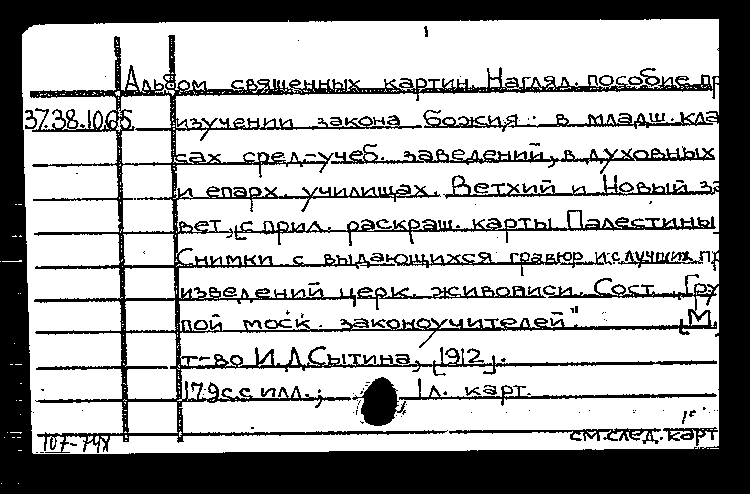 Альбом священных картин. Нагляд. пособие пр
37.38.1065 изучении закона божия: в младш. кла
сах сред.-учеб. заведений, в духовных
и епарх. училищах. Ветхий и Новый за
вет, [с прил. раскраш. карты Палестины]
Снимки с выдающихся гравюр и с лучших пр
изведений церк. живописи. Сост. "Гру
пой моск. законоучителей". [М.
т-во И.Д.Сытина, [1912].
179с.с илл.; 1 л. карт.
1°
107-74х см.след.карт